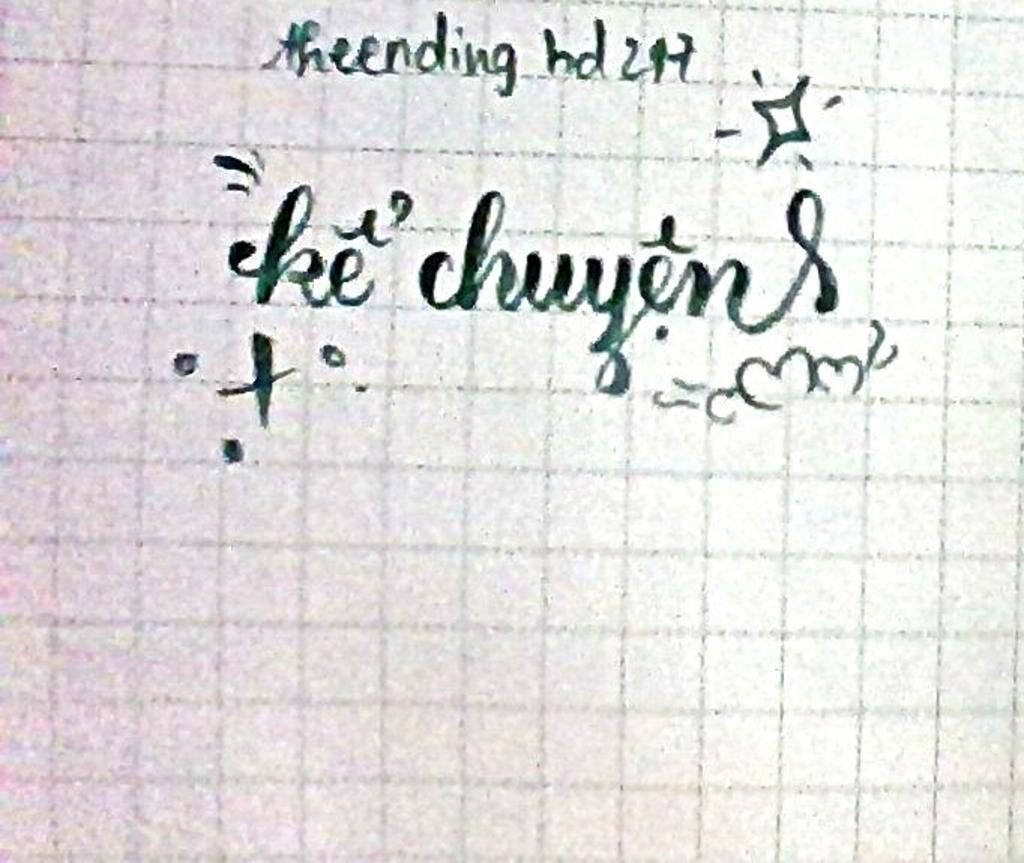 theending hd 247
kể chuyện